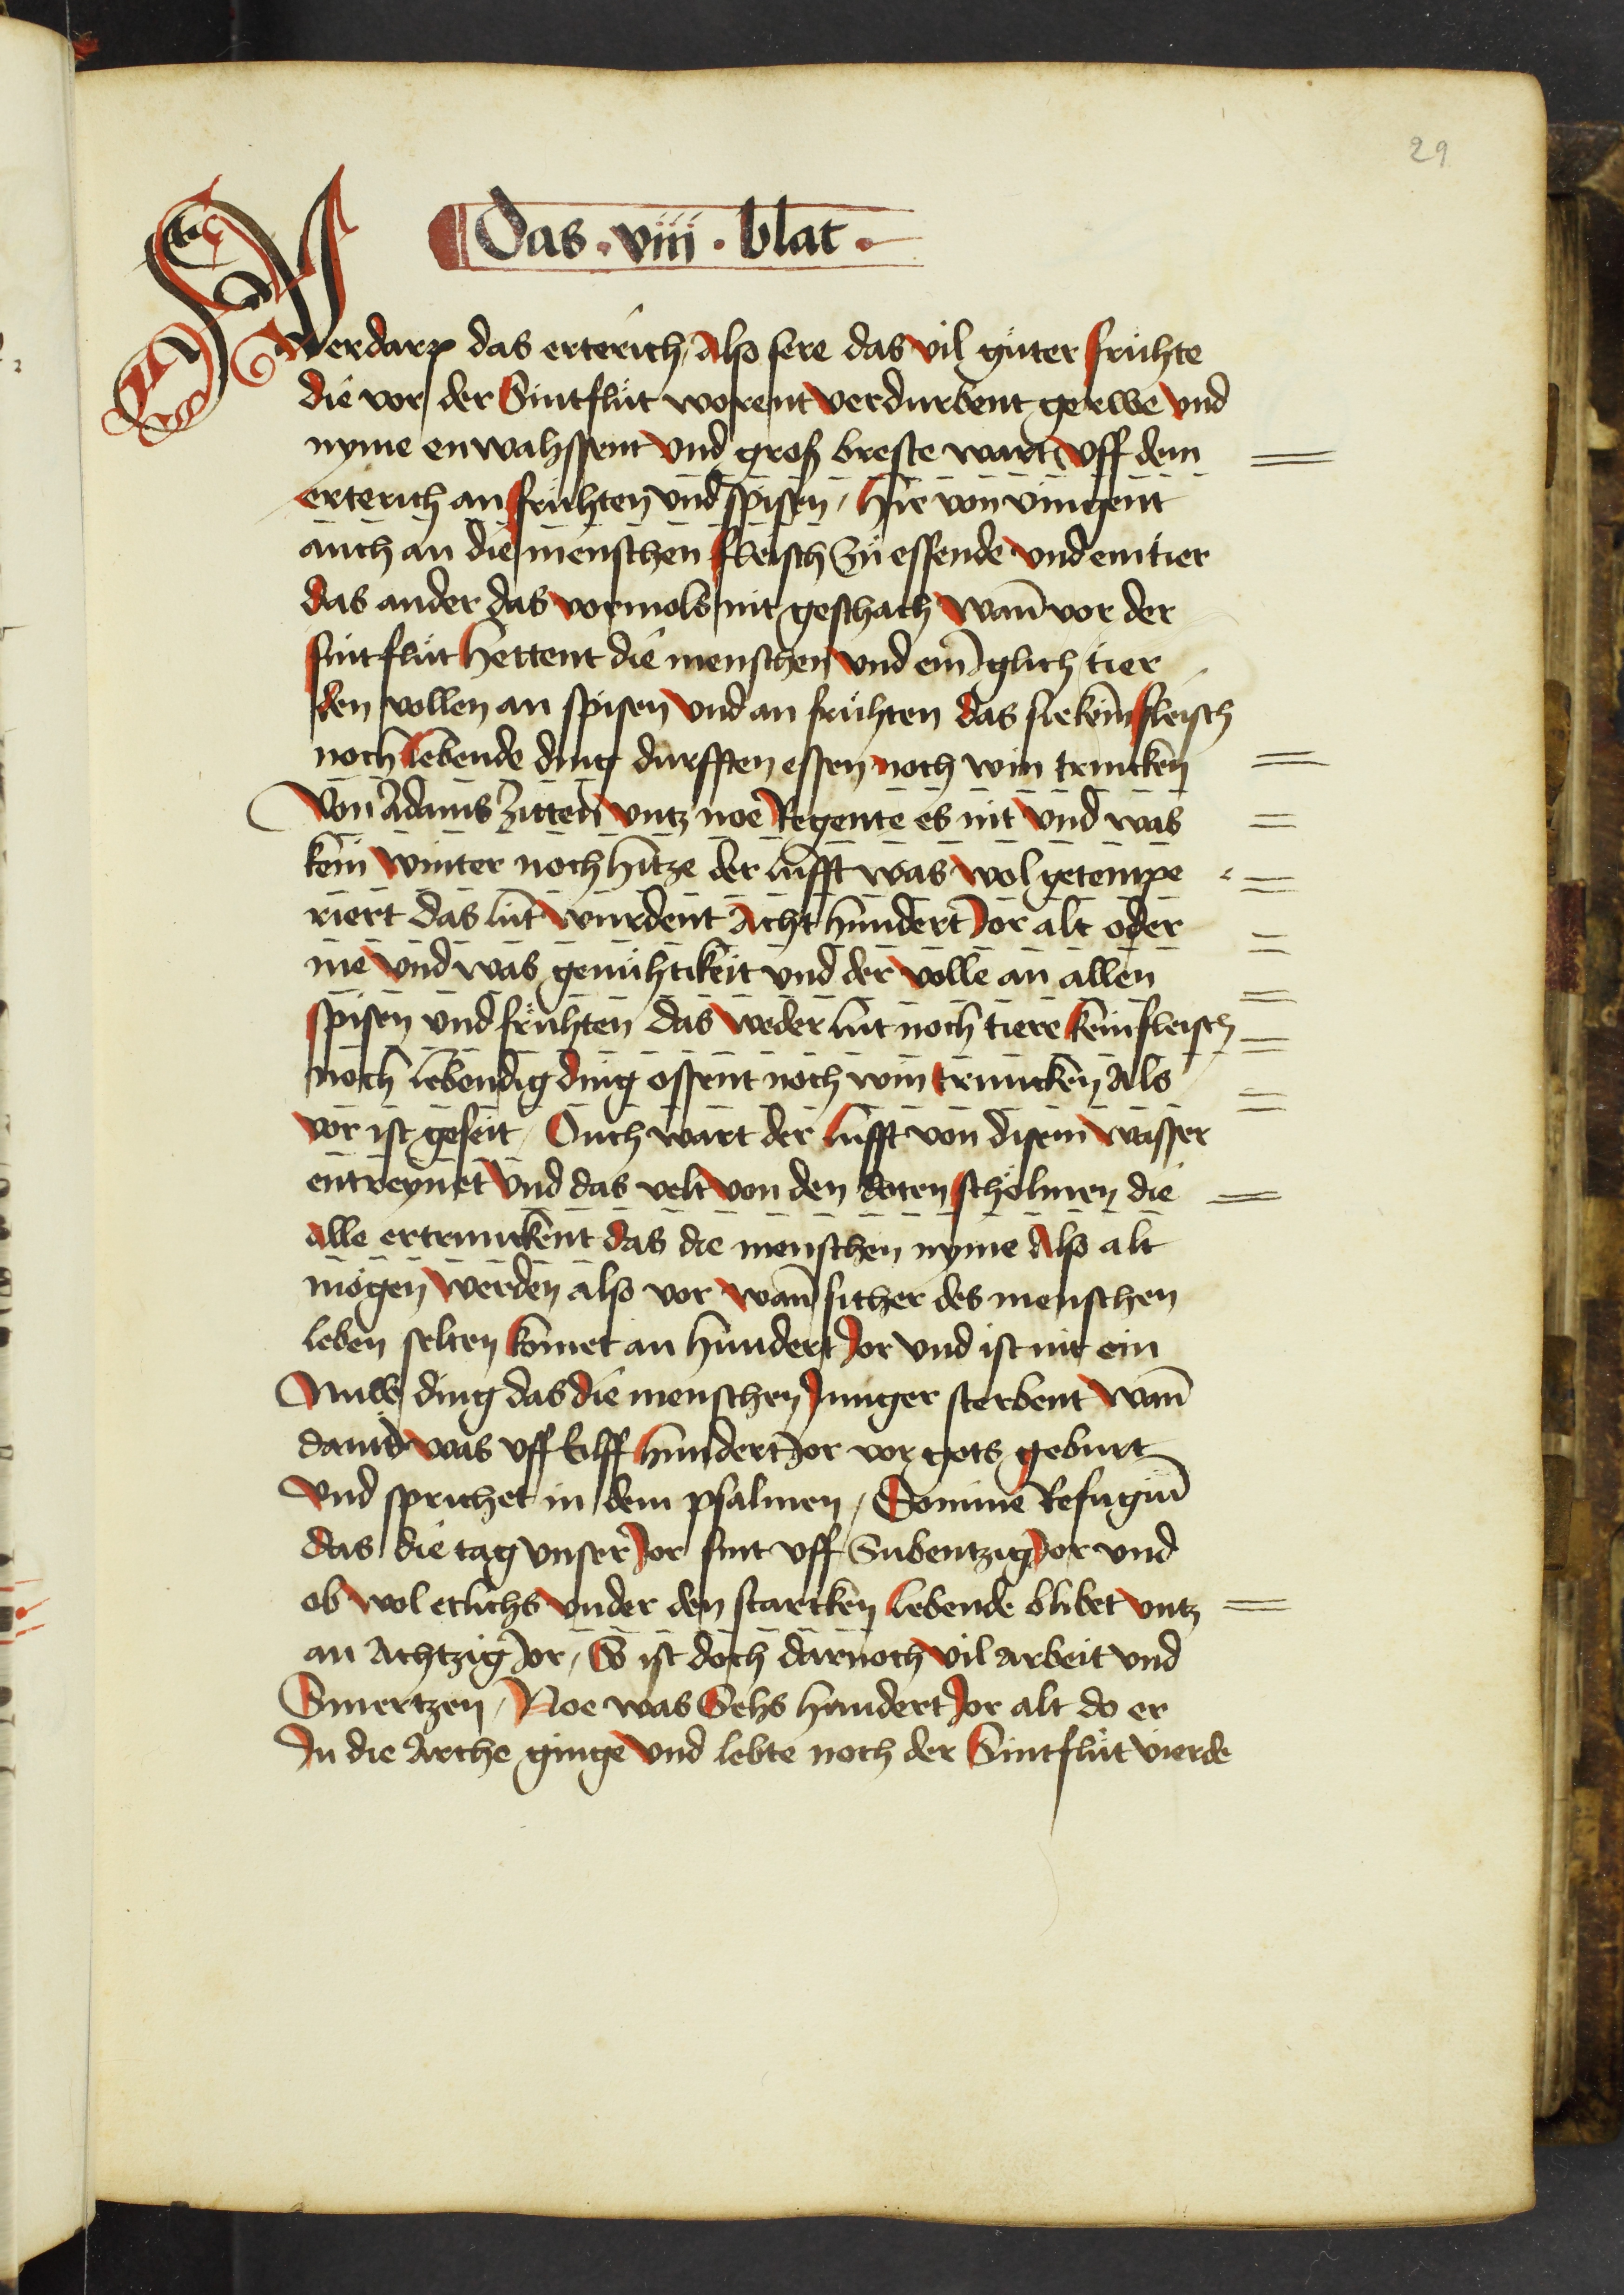 29
Das · viii · blat ·
Verdarp das erterich Also sere das vil gůter frúhte
die vor der Sintflůt worent verdurbent gerwe vnd
nyme enwahssent vnd groß breste wart vff dem
erterich an frúhten vnd spisen / Hie von vingent
auch an die menschen fleisch Zů essende vnd ein tier
das ander das vormols nit geschach Wañ vor der
sintflůt hettent die menschen vnd ein Iglich tier
den vollen an spisen vnd an frúhten das sie kein fleisch
noch lebende ding durfften essen noch win trincken
Von Adams Zitten vntz noe Regente es nit vnd was
kein winter noch hitze der lufft was wol getempe
riert das lút wurdent Acht hundert Jor alt oder
me vnd was genúhtikeit vnd der volle an allen
spisen vnd frúhten das weder lút noch tiere kein fleisch
noch lebendig ding ossent noch win truncken Als
vor ist geseit / Ouch wart der lufft von disem wasser
entreynet vnd das velt von den doten schölmen die
alle ertrunckent das die menschen nyme Also alt
mögen werden also vor wañ sither des menschen
leben selten komet an hundert Jor vnd ist nit ein
Nuwe ding das die menschen Junger sterbent wañ
dauid was vff Eilff hundert Jor vor gots geburt
vnd sprichet in dem psalmen / Domine Refugiũ
das die tag vnser Jor sint vff Subentzig Jor vnd
ob wol etlichs vnder den starcken lebende blibet vntz
an Achtzig Jor / So ist doch darnoch vil arbeit vnd
Smertzen / Noe was Sehs hundert Jor alt do er
In die Arche ginge vnd lebte noch der Sintflůt vierde